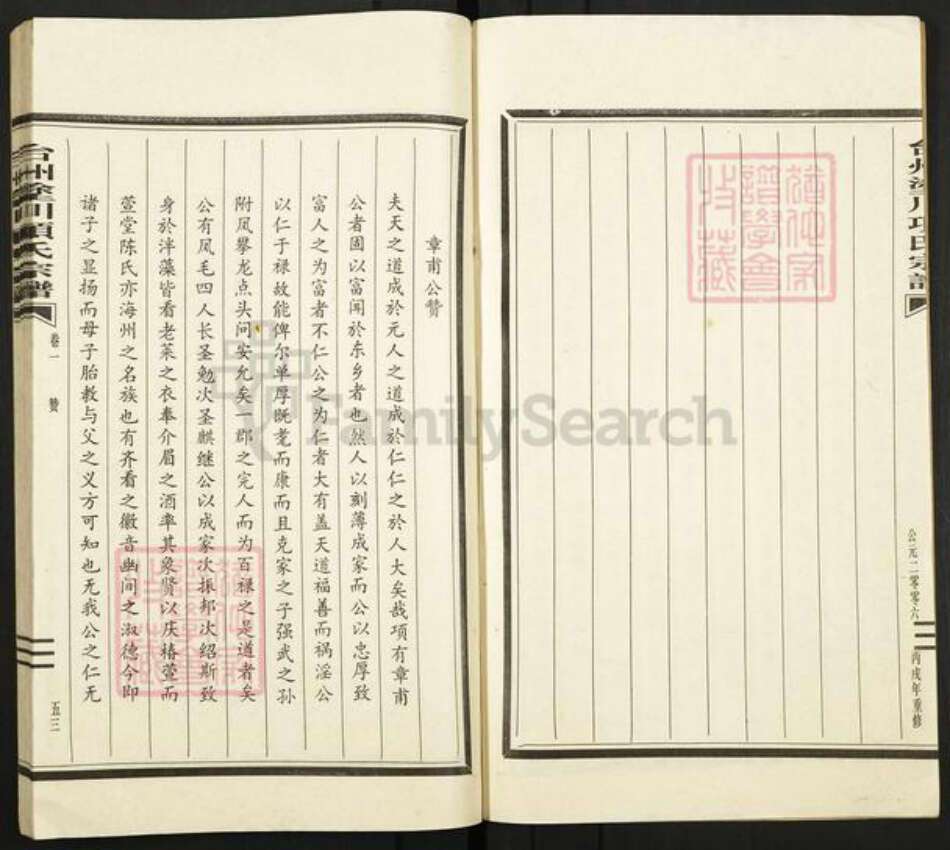 公元二零零六
丙戌年重修
章甫公赞
夫天之道成於元人之道成於仁仁之於人大矣哉项有章甫
公者固以富闻於东乡者也然人以刻薄成家而公以忠厚致
富人之为富者不仁公之为仁者大有盖天道福善而祸淫公
以仁于禄故能俾尔单厚既耄而康而且克家之子强武之孙
附凤攀龙点头问安允矣一郡之完人而为百禄之是道者矣
公有凤毛四人长圣勉次圣麒继公以成家次振邦次绍斯致
身於泮藻皆看老莱之衣奉介眉之酒率其象贤以庆椿萱而
萱堂陈氏亦海州之名族也有齐看之徽音幽间之淑德今即
诸子之显扬而母子胎教与父之义方可知也无我公之仁无
台州涂川項氏宗譜
卷一
赞
五三
FamilySearch